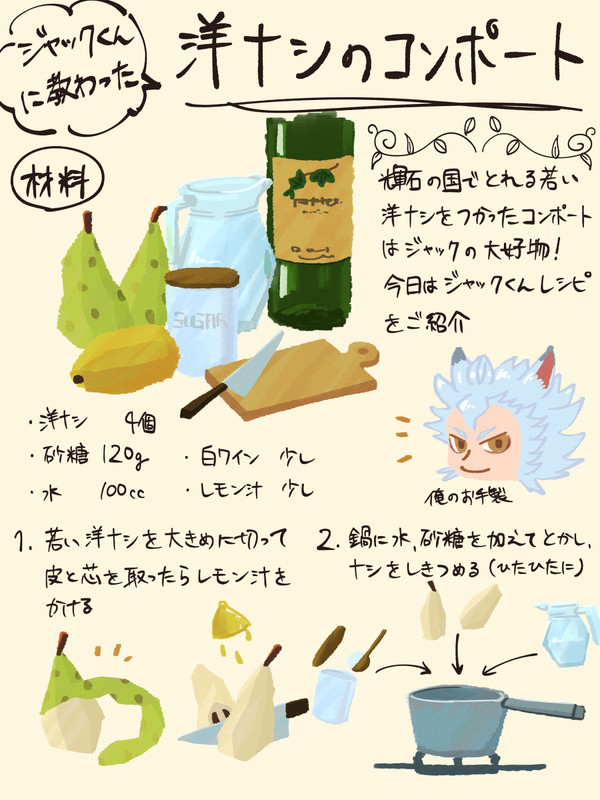 ジャックくん
に教わった
洋ナシのコンポート
材料
輝石の国でとれる若い
洋ナシをつかったコンポート
はジャックの大好物!
今日はジャックくんレシピ
をご紹介
SUGAR
・洋ナシ 4個
・砂糖 120g ・白ワイン 少し
・水 100cc ・レモン汁 少し
俺のお手製
1. 若い洋ナシを大きめに切って
皮と芯を取ったらレモン汁を
かける
2. 鍋に水、砂糖を加えてとかし、
ナシをしきつめる(ひたひたに)